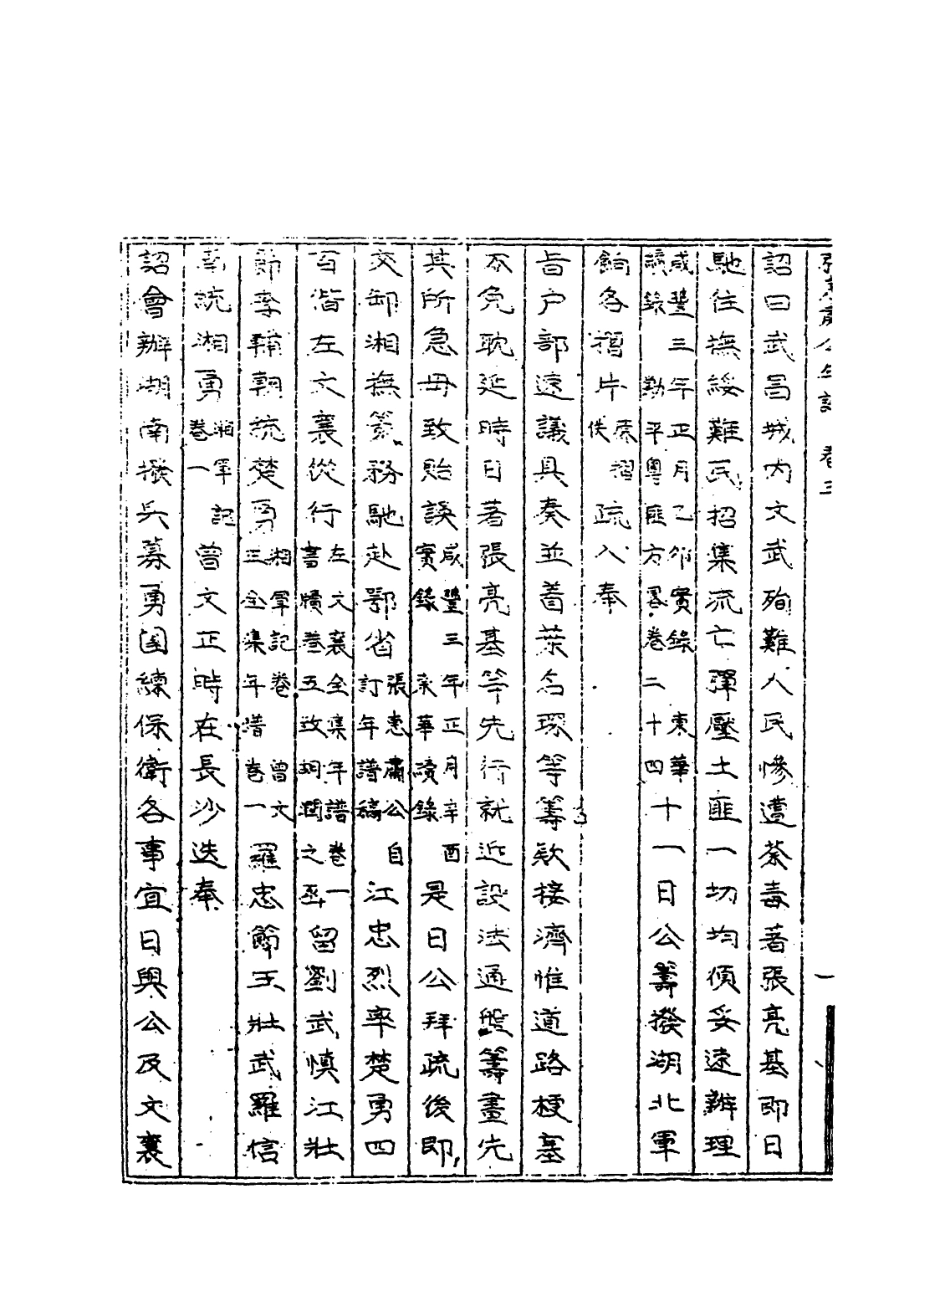 張惠肅公年譜 卷三 一
詔曰武昌城內文武殉難人民慘遭荼毒著張亮基即日
馳往撫綏難民招集流亡彈壓土匪一切均須妥速辦理
咸豐三年正月乙卯實錄 東華續錄 勦平粵匪方畧卷二十四十一日公籌撥湖北軍
餉各摺片原摺佚疏入奉
旨户部速議具奏並着葉名琛等籌欵接濟惟道路梗塞
不免耽延時日著張亮基等先行就近設法通盤籌畫先
其所急毋致貽誤咸豐三年正月辛酉實錄 東華續錄是日公拜疏後即
交卸湘撫篆務馳赴鄂省張惠肅公自訂年譜稿江忠烈率楚勇四
百偕左文襄從行左文襄全集年譜卷一書牘卷五致胡潤之函留劉武慎江壯
節李輔朝統楚勇湘軍記卷三 曾文正全集年譜卷一羅忠節王壯武羅信
南統湘勇湘軍記卷一曾文正時在長沙迭奉
詔會辦湖南撥兵募勇團練保衛各事宜日與公及文襄